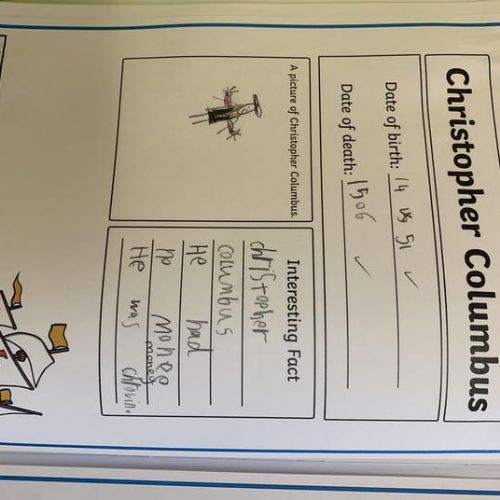 Christopher Columbus
Date of birth: 14 51 ✓
Date of death: 1506 ✓
A picture of Christopher Columbus.
Interesting Fact
christopher
columbus
He had
no monee
money
He was